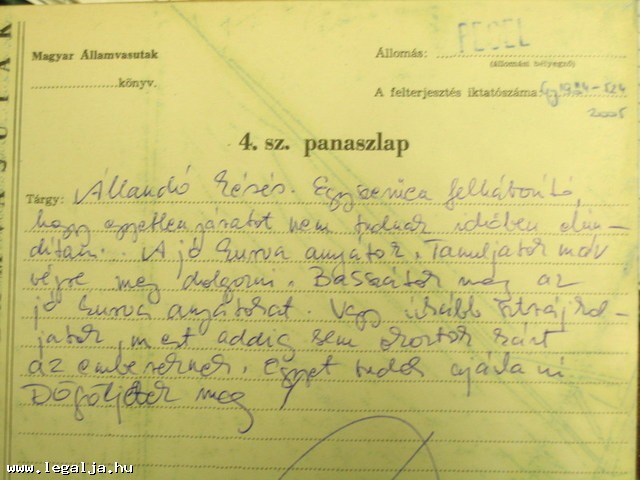 Magyar Államvasutak
könyv.
Állomás: PECEL
(állomási bélyegző)
A felterjesztés iktatószáma: 1984-524
2005
4. sz. panaszlap
Tárgy: Állandó késés. Egyszerűen felháborító,
hogy egyetlen járatot nem tudnak időben elin-
dítani. A jó kurva anyátok. Tanuljatok már
végre meg dolgozni. Basszátok meg az
jó kurva anyátokat. Vagy inkább sztrájkol-
jatok, mert addig sem okoztok kárt
az embereknek. Egyet tudok ajánlani
Dögöljetek meg!
www.legalja.hu